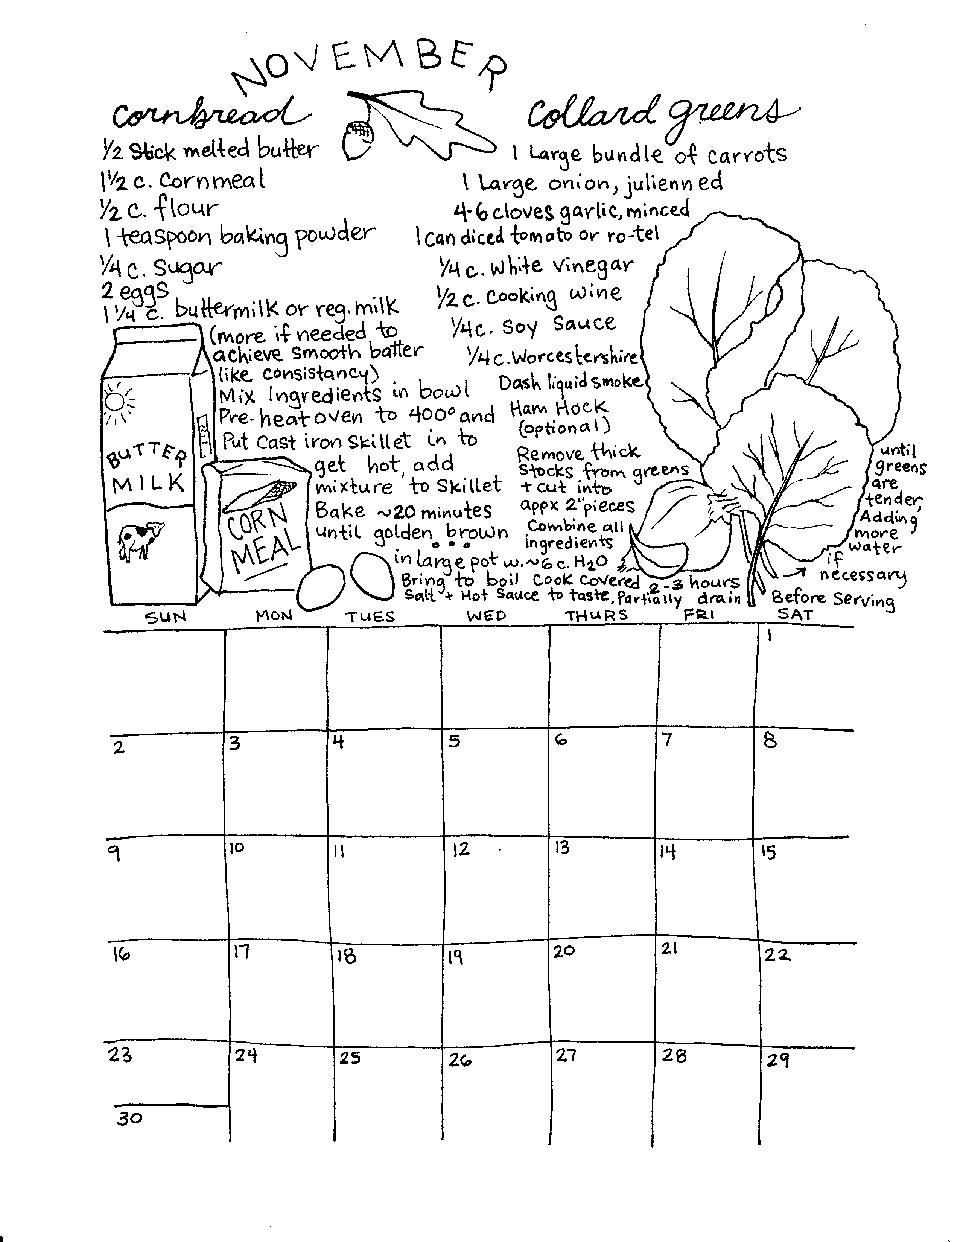 NOVEMBER
Cornbread
1/2 Stick melted butter
1 1/2 c. Cornmeal
1/2 c. flour
1 teaspoon baking powder
1/4 c. Sugar
2 eggs
1 1/4 c. buttermilk or reg. milk
(more if needed to
achieve smooth batter
(like consistancy)
Mix Ingredients in bowl
Pre-heat oven to 400° and
Put Cast iron Skillet in to
get hot, add
mixture to Skillet
Bake ~20 minutes
until golden brown
BUTTER
MILK
CORN
MEAL
Collard greens
1 Large bundle of carrots
1 Large onion, julienned
4-6 cloves garlic, minced
1 can diced tomato or ro-tel
1/4 c. White Vinegar
1/2 c. Cooking wine
1/4 c. Soy Sauce
1/4 c. Worcestershire
Dash liquid smoke
Ham Hock
(optional)
Remove thick
Stocks from greens
+ cut into
appx 2" pieces
Combine all
ingredients
in large pot w. ~6 c. H2O
Bring to boil Cook Covered 2-3 hours
Salt + Hot Sauce to taste, Partially drain
until
greens
are
tender,
Adding
more
water
if
→ necessary
Before Serving
SUN MON TUES WED THURS FRI SAT
1
2 3 4 5 6 7 8
9 10 11 12 13 14 15
16 17 18 19 20 21 22
23 24 25 26 27 28 29
30